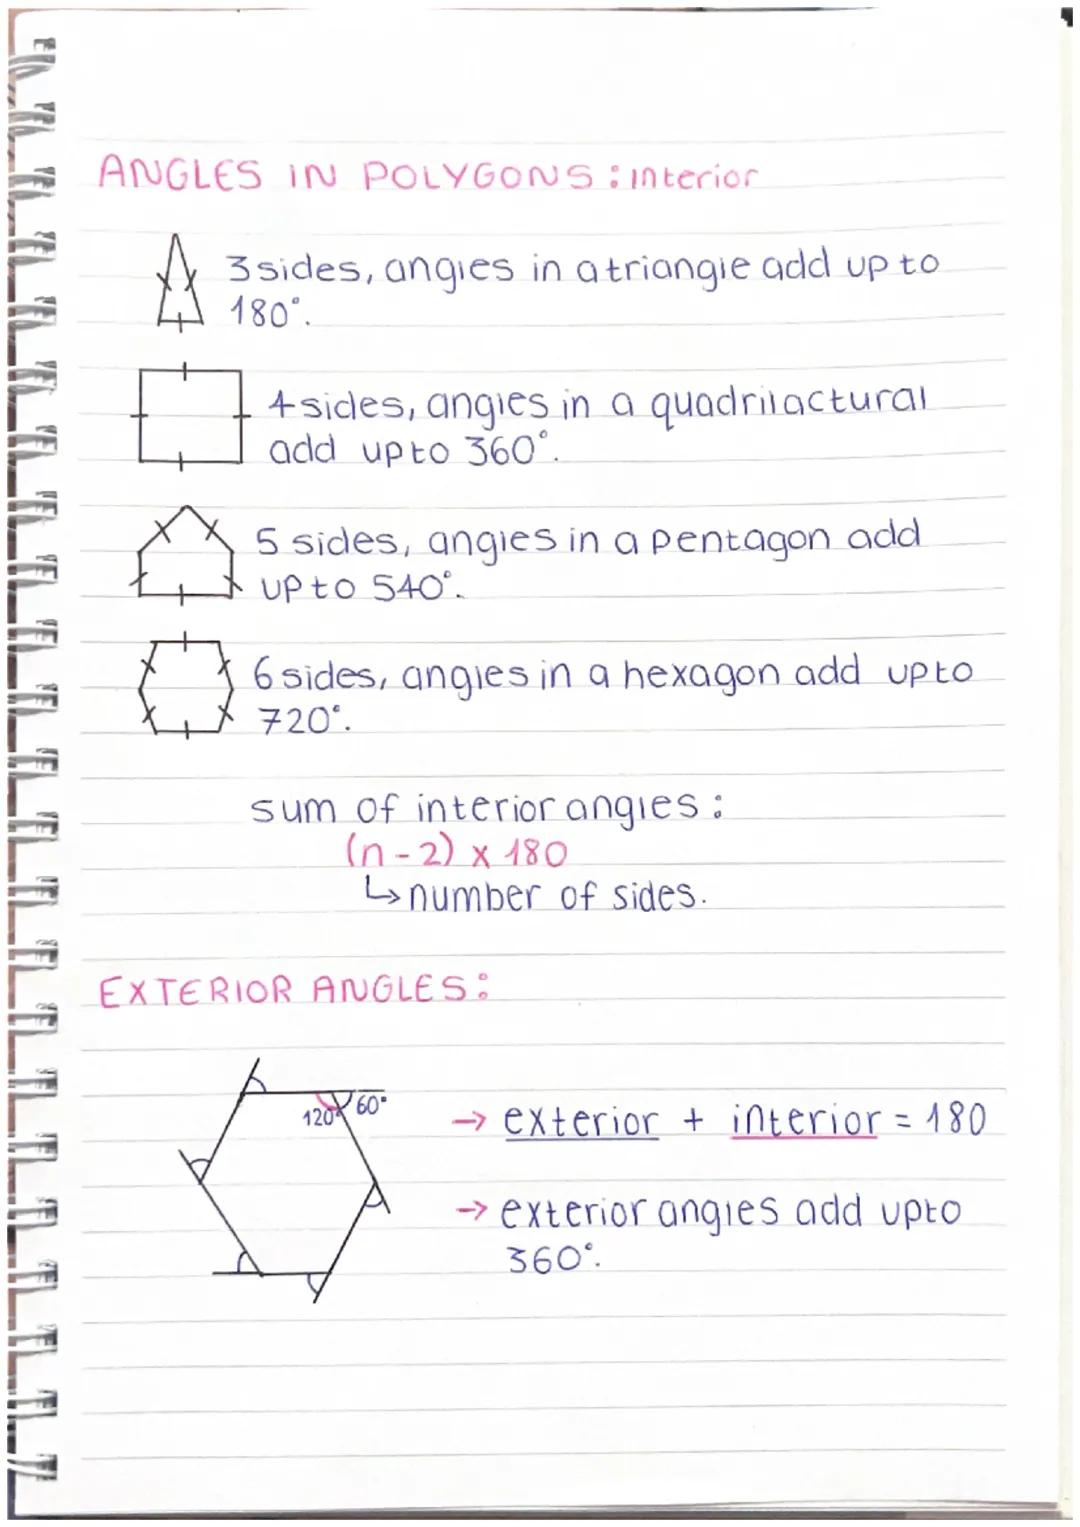 ANGLES IN POLYGONS: interior
3 sides, angles in a triangle add up to
180°.
4 sides, angles in a quadrilactural
add up to 360°.
5 sides, angles in a pentagon add
up to 540°.
6 sides, angles in a hexagon add up to
720°.
sum of interior angles:
(n - 2) x 180
↳ number of sides.
EXTERIOR ANGLES:
120° 60°
→ exterior + interior = 180
→ exterior angles add up to
360°.